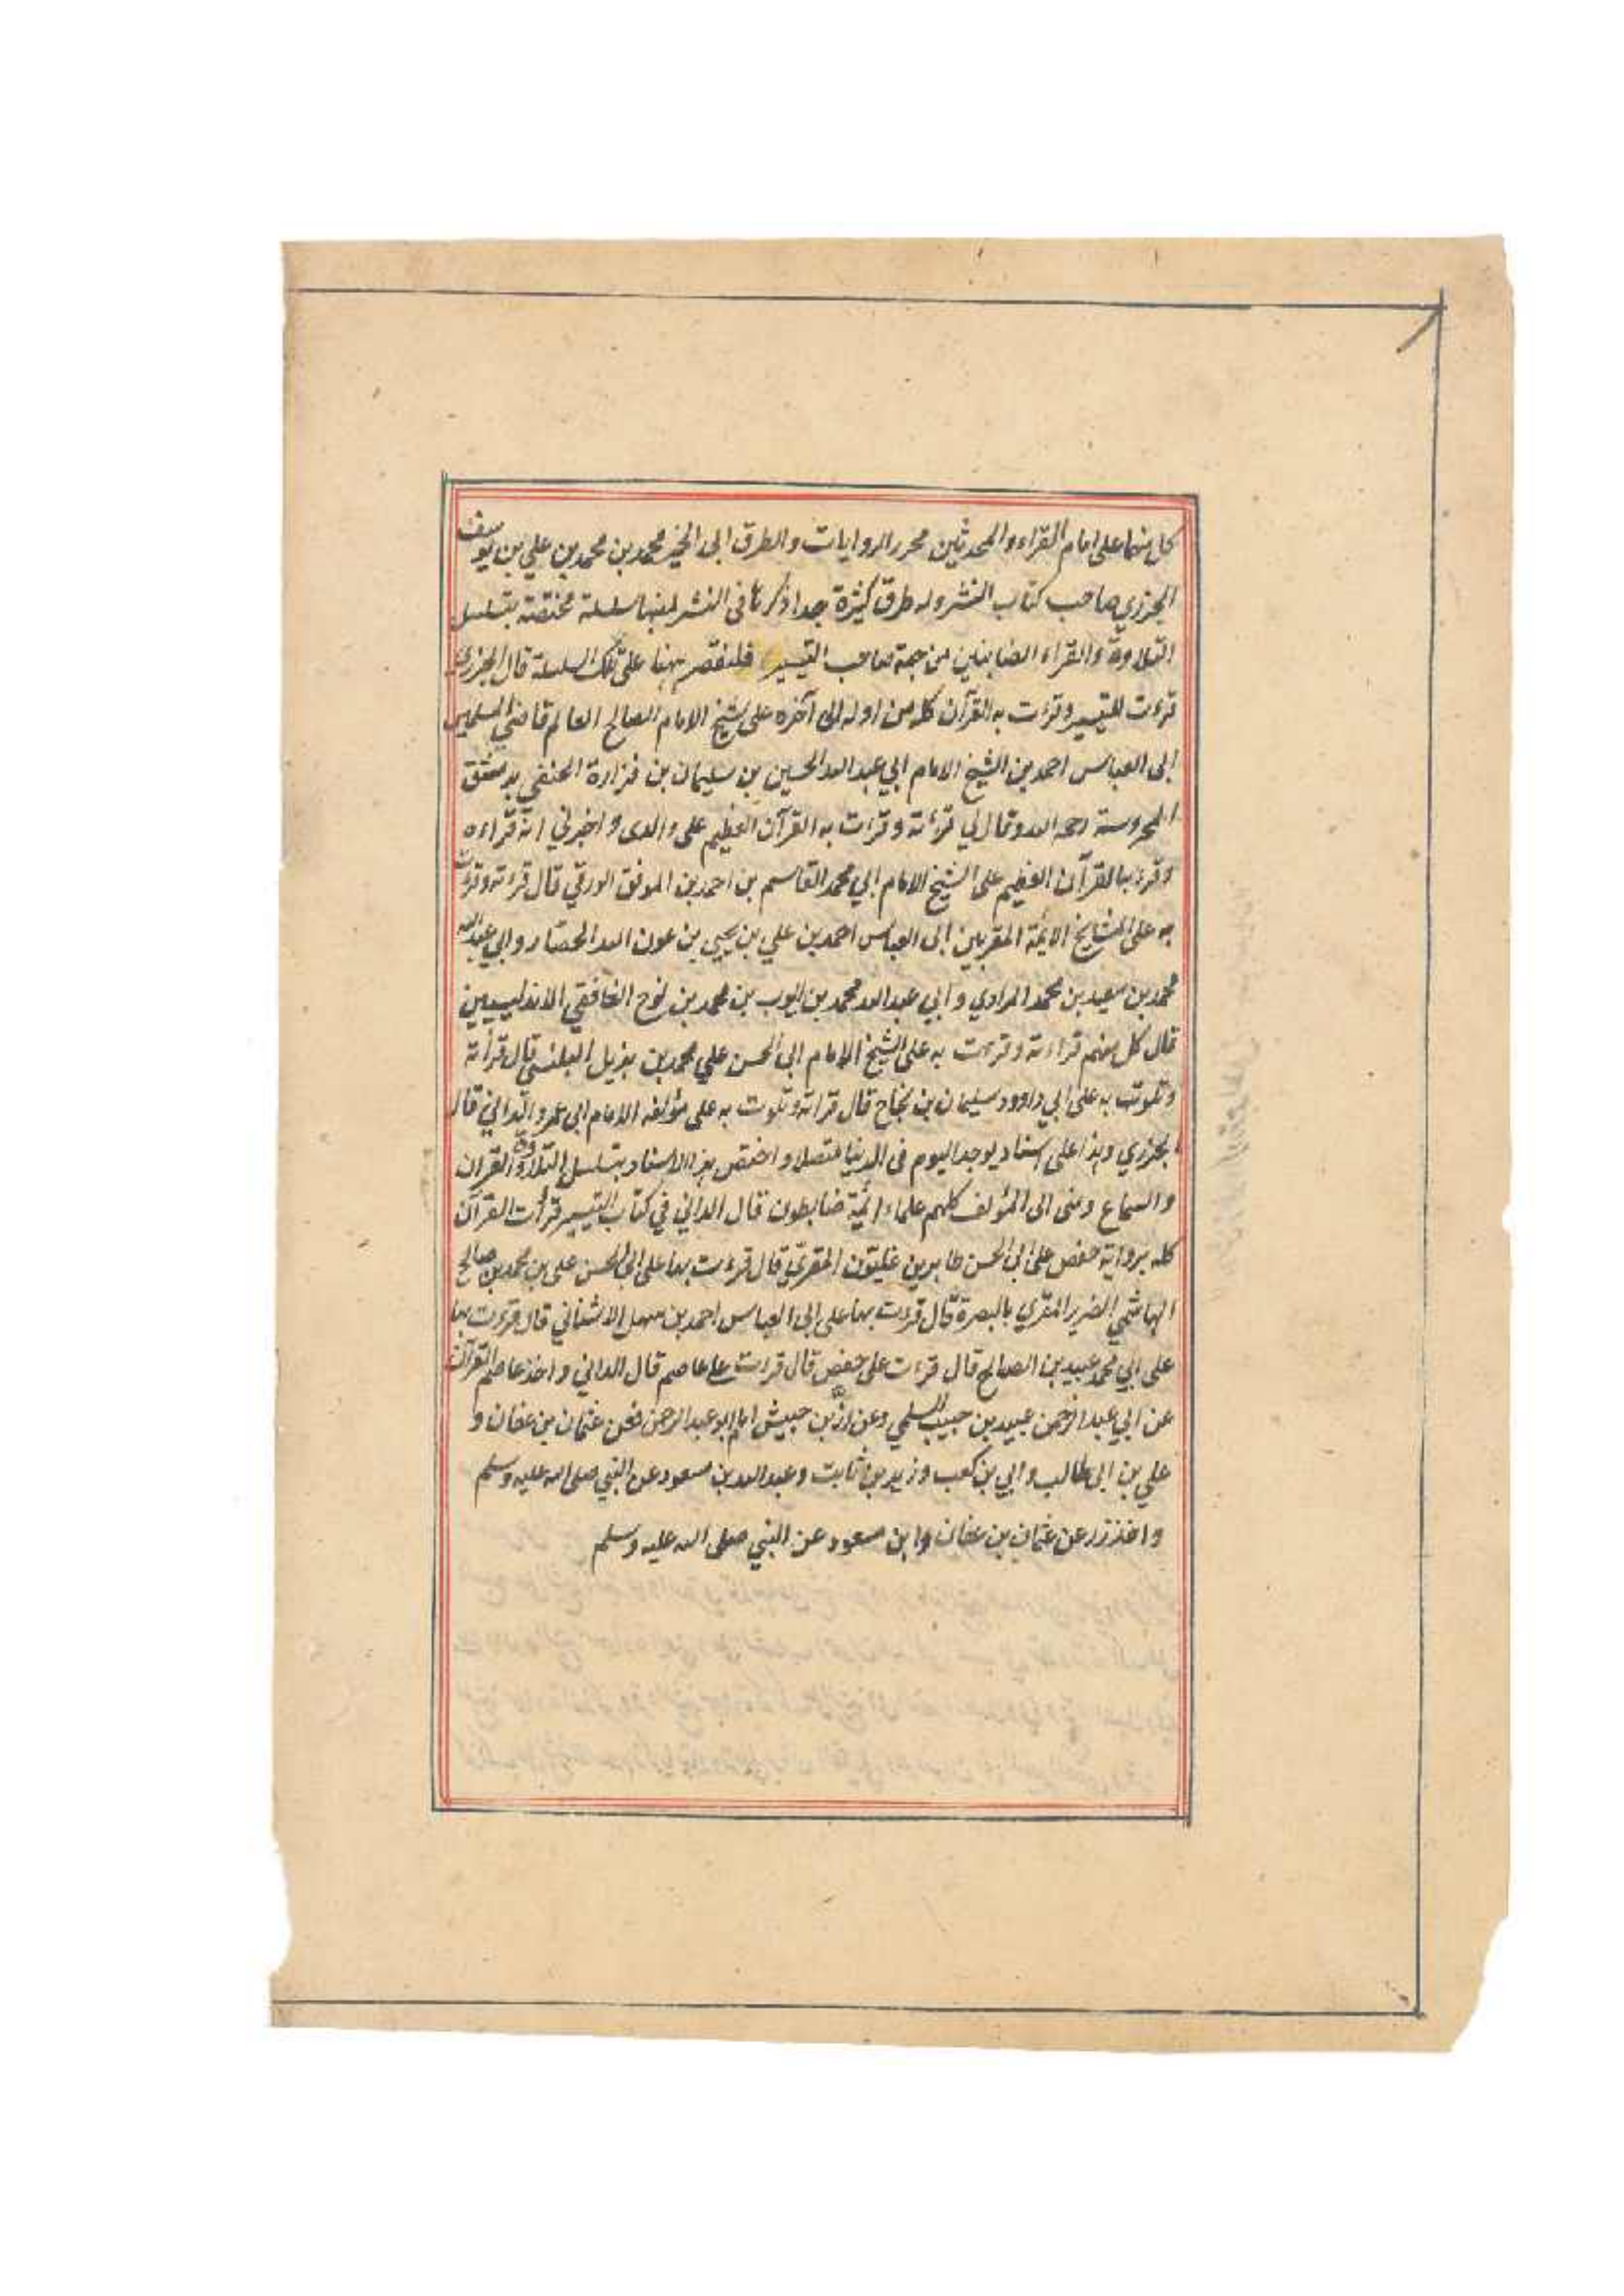 كل منهما على امام القراء والمحدثين محرر الروايات والطرق ابى الخير محمد بن محمد بن محمد بن علي بن يوسف
الجزري صاحب كتاب النشر وله طرق كثيرة جدا ذكرها فى النشر منها سلسلة مختصة بتسلسل
التلاوة والقراء الضابطين من جهة صاحب التيسير فلنقتصر ههنا على تلك السلسلة قال الجزري
قرءت التيسير وقرءت به القرآن كله من اوله الى آخره على شيخ الامام الصالح العالم قاضي المسلمين
ابى العباس احمد بن الشيخ الامام ابي عبد الله الحسين بن سليمان بن فزارة الحنفي بدمشق
المحروسة رحمه الله وقال لي قرءته وقرءت به القرآن العظيم على والدى واخبرني انه قراءه
وقرء بها القرآن العظيم على الشيخ الامام ابي محمد القاسم بن احمد بن الموفق الورقي قال قرءته وقرءت
به على المشايخ الائمة المقريين ابى العباس احمد بن علي بن يحيى بن عون الله الحصار وابي عبد الله
محمد بن سعيد بن محمد المرادي وابي عبد الله محمد بن ايوب بن محمد بن نوح الغافقي الاندلسيين
قال كل منهم قراءته وقرءت به على الشيخ الامام ابى الحسن علي محمد بن هذيل البلنسي قال قرأته
وتلوت به على ابي داوود سليمان بن نجاح قال قراته وتلوت به على مؤلفه الامام ابى عمرو الداني قال
الجزري وهذا اعلى اسناد يوجد اليوم فى الدنيا متصلا واختص هذا الاسناد بتسلسل التلاوة والقران
والسماع ومنى الى المؤلف كلهم علماء ائمة ضابطون قال الداني في كتاب التيسير قرأت القرآن
كله برواية حفص على ابى الحسن طاهر بن غلبون المقرئ قال قرءت بها على ابى الحسن على بن محمد بن صالح
الهاشمي الضرير المقري بالبصرة قال قرءت بها على ابى العباس احمد بن سهل الاشناني قال قرءت بها
على ابي محمد عبيد بن الصالح قال قرءت على حفص قال قرءت على عاصم قال الداني واخذ عاصم القرآن
عن ابي عبد الرحمن عبيد بن حبيب السلمي وعن زر بن حبيش اما ابو عبد الرحمن فعن عثمان بن عفان و
علي بن ابى طالب وابي بن كعب وزيد بن ثابت وعبد الله بن مسعود عن النبي صلى الله عليه وسلم
واخذ زر عن عثمان بن عفان وابن مسعود عن النبي صلى الله عليه وسلم